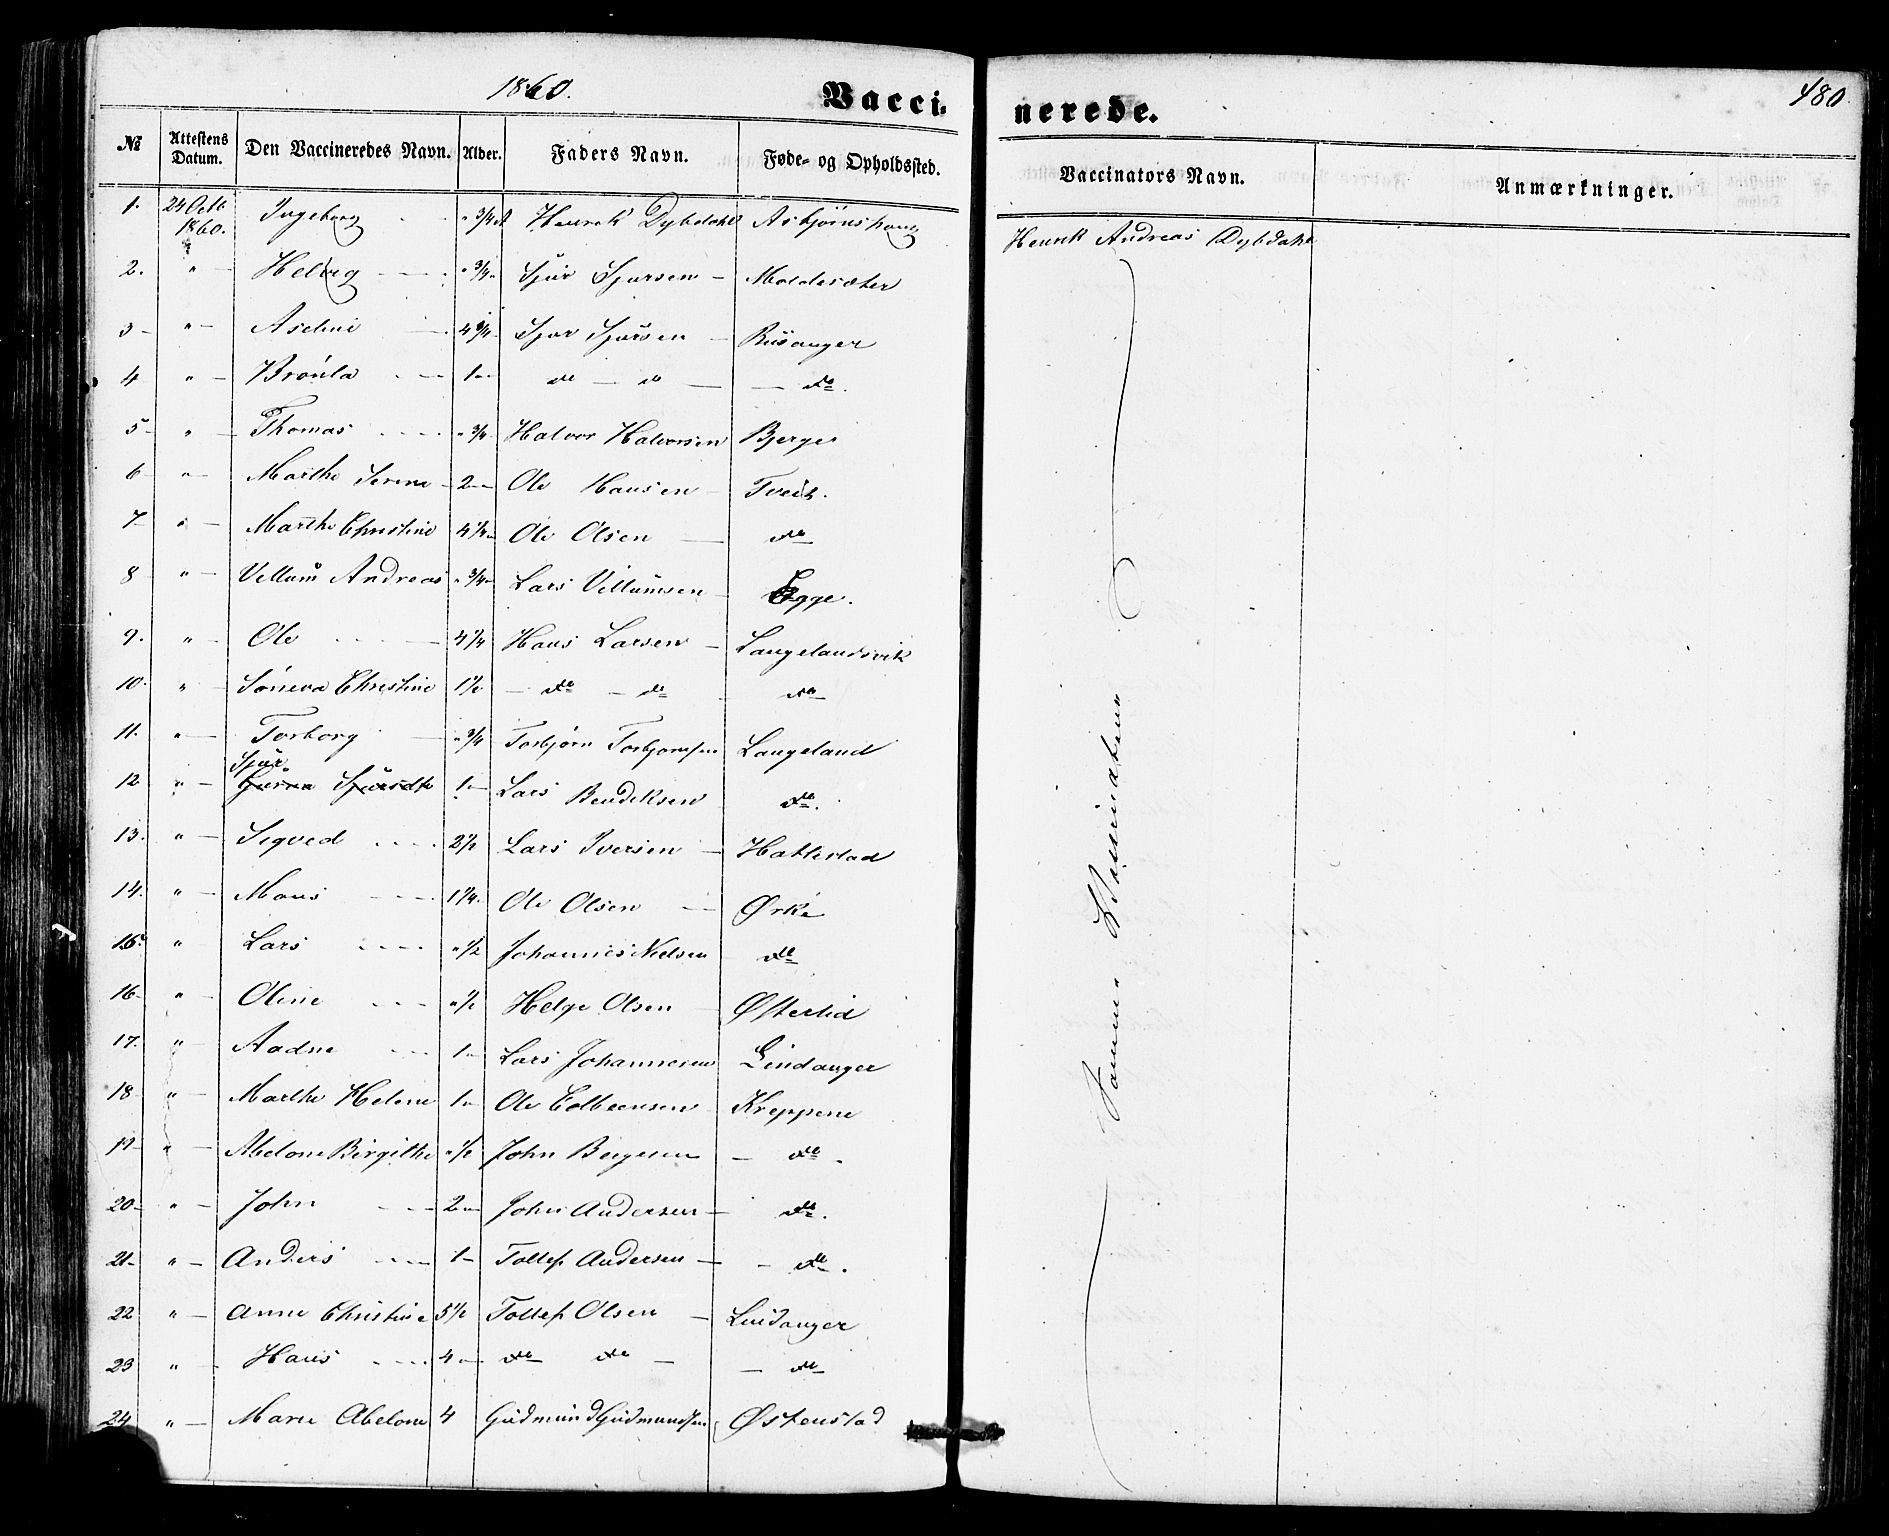 1860.
Vacci-
nerede.
480
№ Attestens Datum. Den Vaccineredes Navn. Alder. Faders Navn. Føde- og Opholdssted. Vaccinators Navn. Anmærkninger.
1. 24 Octb 1860. Ingeborg " 3/4 A Henrik Dybdahl Asbjørnshaug Henrik Andreas Dybdahl
2. " Helvig " 3/4 Sjur Sjursen Moldesæter
3 " Aseline 4 3/4 Sjur Sjursen Riisanger
4 " Brønla 1 do do do.
5 " Thomas " 3/4 Halvor Halvorsen Bjerge
6 " Marthe Serine 2 Ole Hansen Tveit.
7 " Marthe Christine 4 1/4 Ole Olsen do
8 " Villum Andreas " 3/4 Lars Villumsen Egge.
9. " Ole 4 1/4 Hans Larsen Langelandsvik
10. " Søneva Christine 1 1/2 do do do
11. " Torborg " 3/4 Torbjørn Torbjørnsen Langeland
Sjur
12 " 1 Lars Bendiksen do.
13. " Sigved 2 1/2 Lars Iversen Hattestad
14. " Mons 1 1/4 Ole Olsen Ørke
15. " Lars " 1/2 Johannes Nielsen do
16 " Oline " 1/2 Helge Olsen Østerlid
17. " Aadne 1 Lars Johannesen Lindanger
18 " Marthe Helene 1 Ole Colbeensen Kreppene
19 " Abelone Birgithe " 1/2 John Bergesen do.
20 " John 2 John Andersen do.
21 " Anders 1 Tollef Andersen do.
22 " Anne Christine 5 1/2 Tollef Olsen Lindanger
23 " Hans 4 do do do
24 " Marie Abelone 4 Gudmund Gudmundsen Østenstad
Samme Vaccinateur